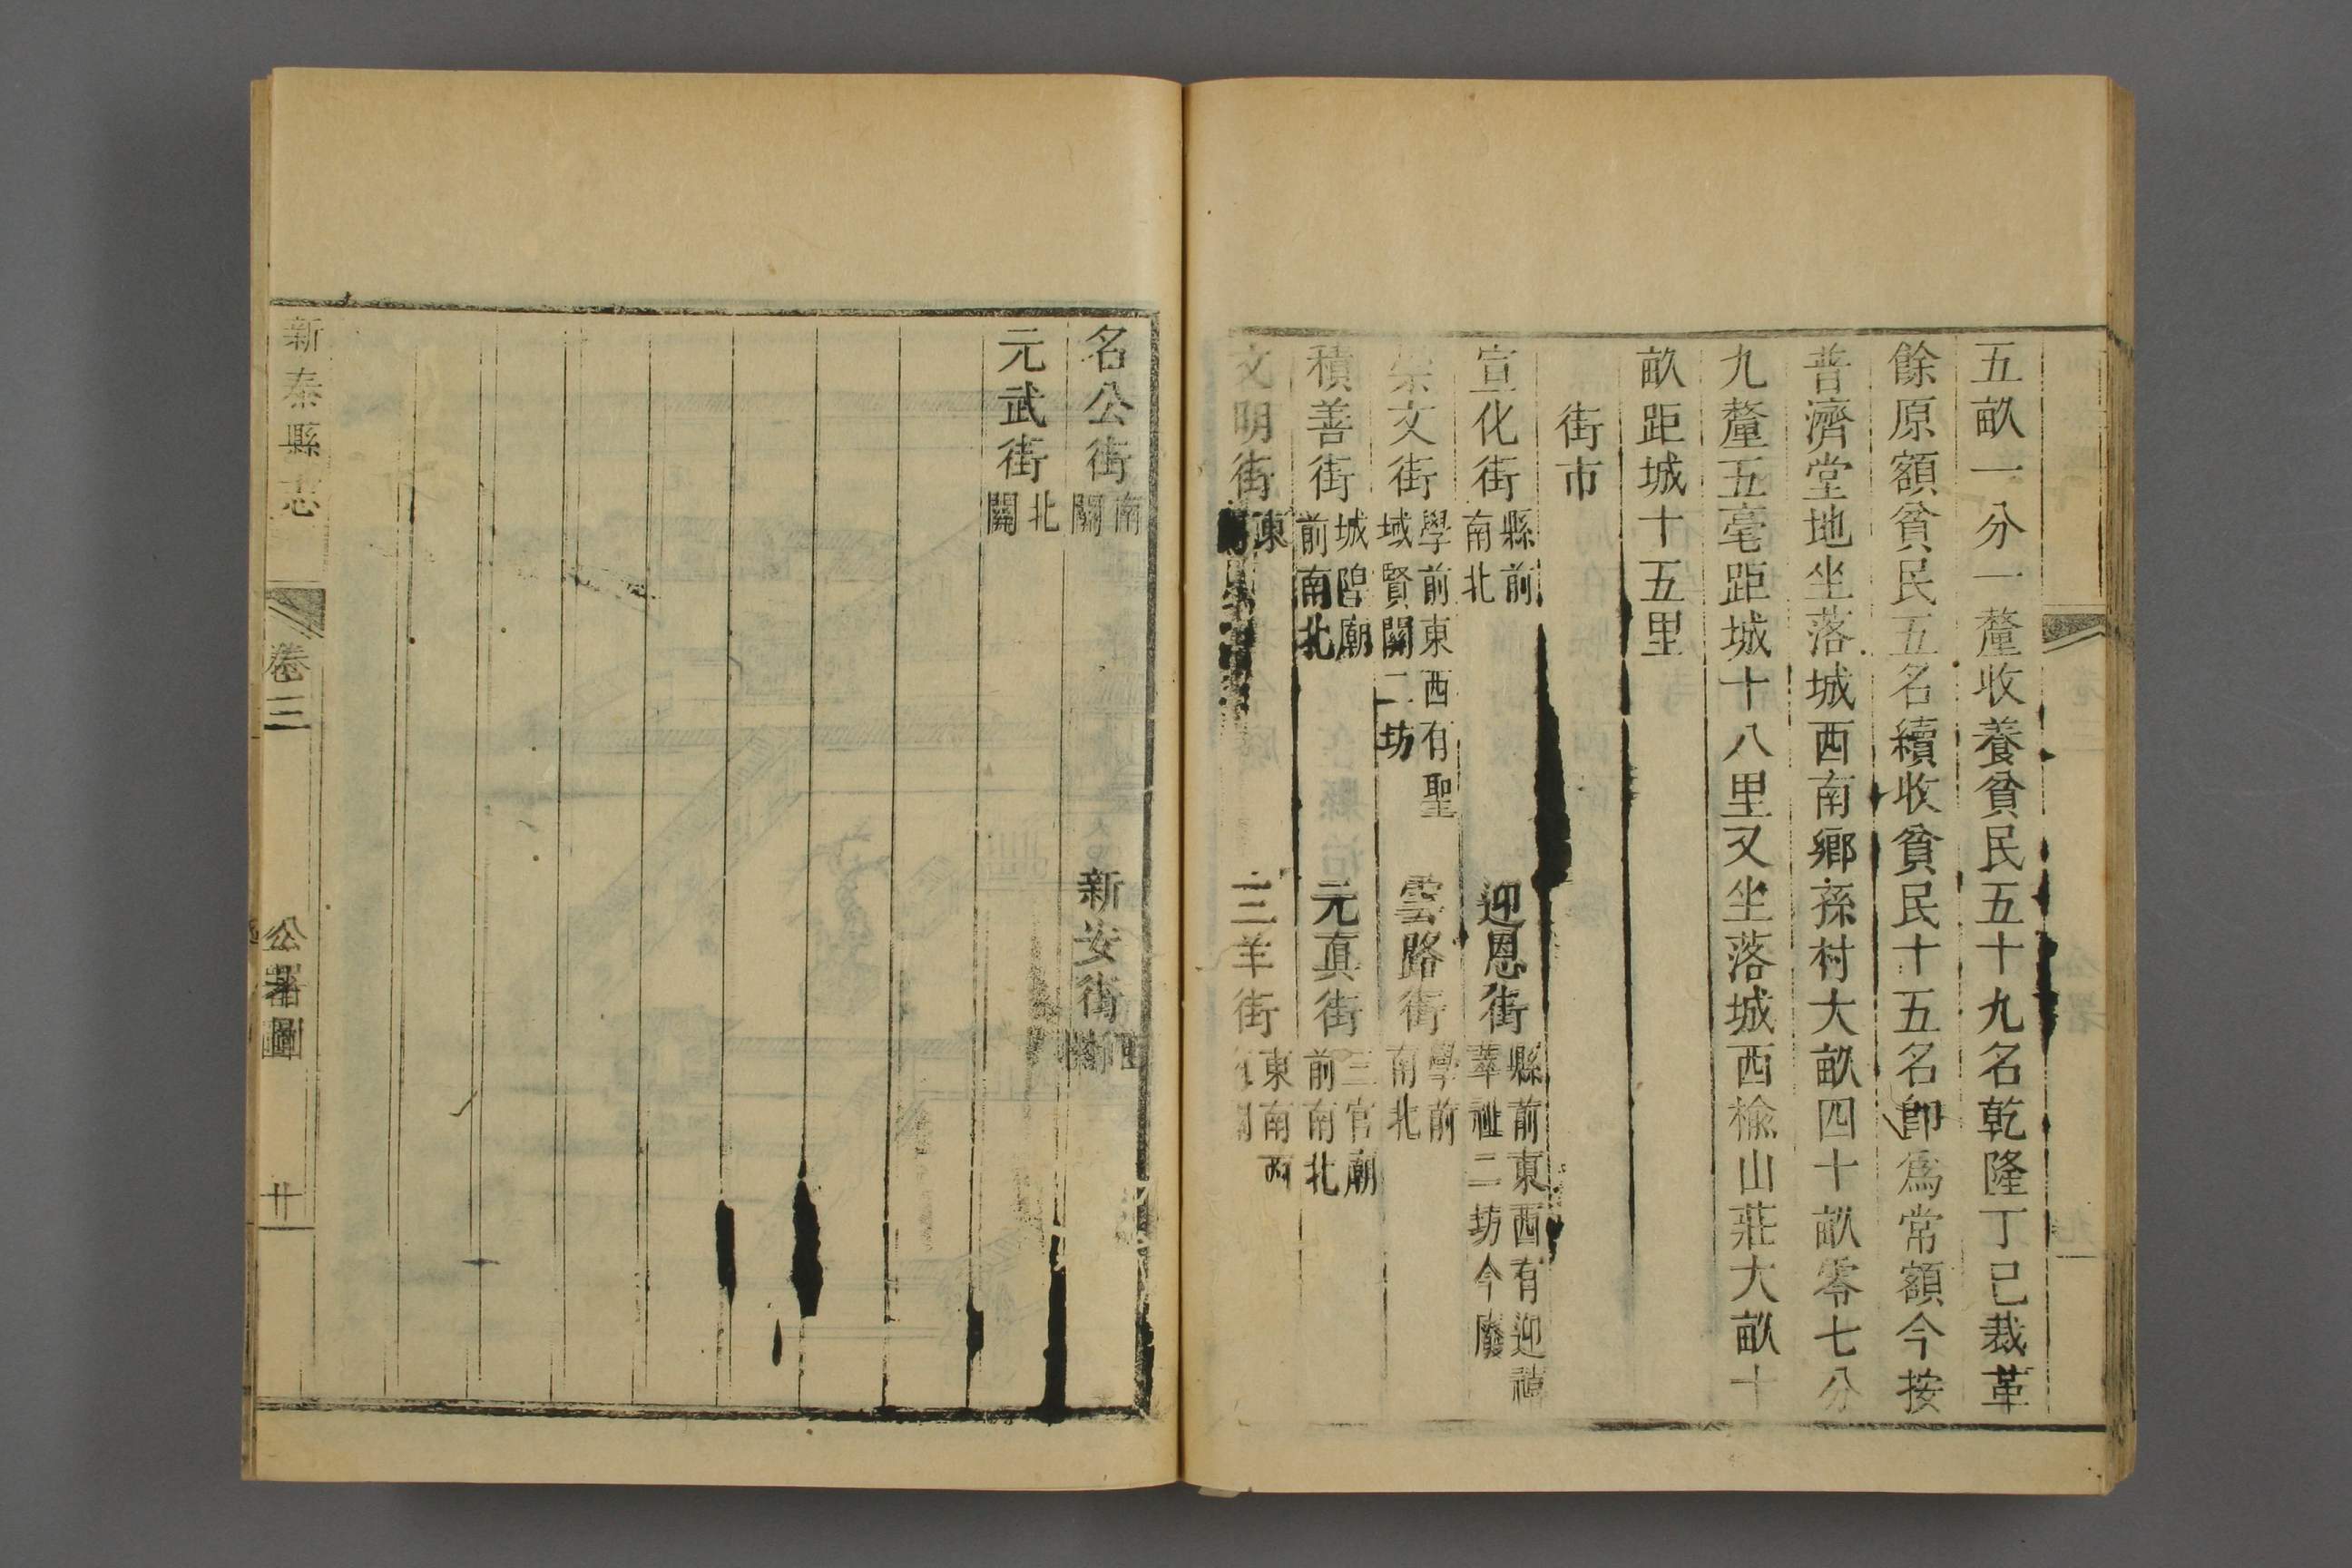 五畝一分一釐收養貧民五十九名乾隆丁巳裁革
餘原額貧民五名續收貧民十五名卽爲常額今按
普濟堂地坐落城西南鄉孫村大畝四十畝零七分
九釐五毫距城十八里又坐落城西楡山莊大畝十
畝距城十五里
街市
宣化街縣前南北
迎恩街縣前東西有迎禧萃祉二坊今廢
崇文街學前東西有聖域賢關二坊
雲路街學前南北
積善街城隍廟前南北
元真街三官廟前南北
文明街東
三羊街東南西
名公街南關
新安街
元武街北關
新泰縣志
卷三
公署圖
廿